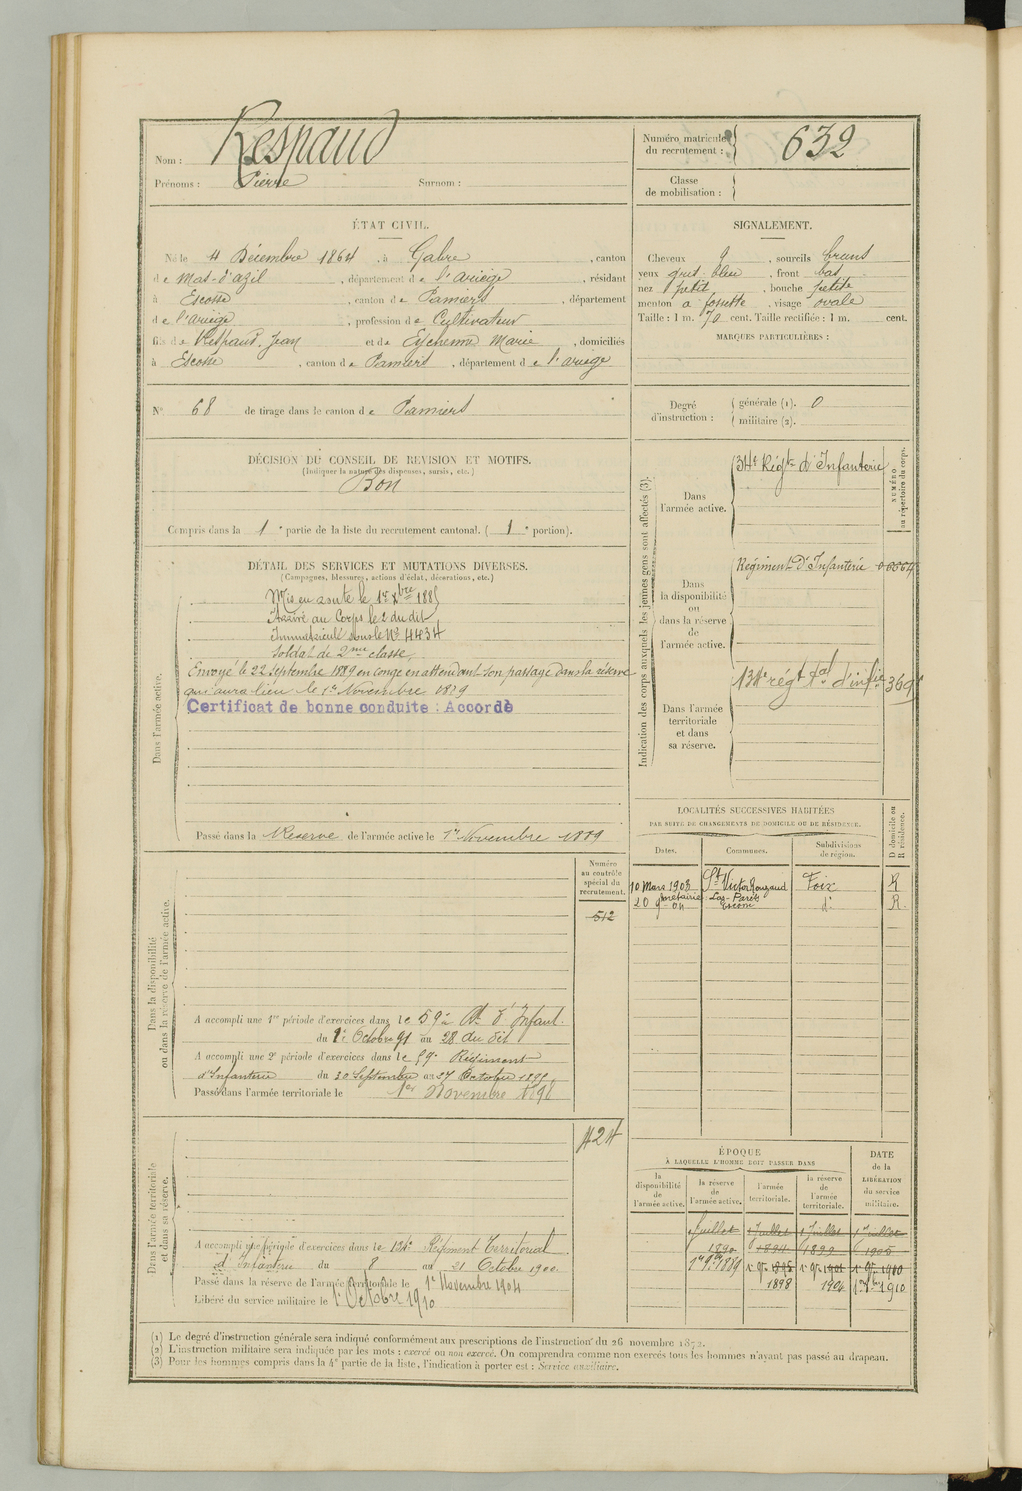 Nom : Respaud
Prénoms : Pierre Surnom :
Numéro matricule du recrutement : 632
Classe de mobilisation :
ÉTAT CIVIL.
Né le 4 Décembre 1864, à Gabre, canton
de Mas-d'azil, département de l'ariège, résidant
à Escosse, canton de Pamiers, département
de l'ariège, profession de Cultivateur
fils de Respaud, Jean et de Eychenne Marie, domiciliés
à Escosse, canton de Pamiers, département de l'ariège
N° 68 de tirage dans le canton de Pamiers
SIGNALEMENT.
Cheveux, sourcils bruns
yeux gris bleu, front bas
nez petit, bouche petite
menton a fossette, visage ovale
Taille : 1 m. 70 cent. Taille rectifiée : 1 m. cent.
MARQUES PARTICULIÈRES :
Degré d'instruction :
générale (1). 0
militaire (2).
DÉCISION DU CONSEIL DE REVISION ET MOTIFS.
(Indiquer la nature des dispenses, sursis, etc.)
Bon
Compris dans la 1e partie de la liste du recrutement cantonal. (1e portion).
DÉTAIL DES SERVICES ET MUTATIONS DIVERSES.
(Campagnes, blessures, actions d'éclat, décorations, etc.)
Dans l'armée active.
Mis en route le 1er Xbre 1885
Arrivé au Corps le 2 du dit
Immatriculé sous le N° 4434
Soldat de 2me classe
Envoyé le 22 Septembre 1889 en congé en attendant son passage dans la réserve
qui aura lieu le 1er Novembre 1889
Certificat de bonne conduite : Accordé
Passé dans la Réserve de l'armée active le 1er Novembre 1889
Indication des corps auxquels les jeunes gens sont affectés (3).
NUMÉRO au répertoire du corps.
Dans l'armée active.
34e Régt d'Infanterie
Dans la disponibilité ou dans la réserve de l'armée active.
Régiment d'Infanterie
Dans l'armée territoriale et dans sa réserve.
134e régt tal d'infie
LOCALITÉS SUCCESSIVES HABITÉES
PAR SUITE DE CHANGEMENTS DE DOMICILE OU DE RÉSIDENCE.
D domicile ou R résidence.
Dates. Communes. Subdivisions de région.
10 Mars 1903 St Victor Rouzaud Foix R
Escosse d° R.
Dans la disponibilité ou dans la réserve de l'armée active.
Numéro au contrôle spécial du recrutement.
512
A accompli une 1re période d'exercices dans le 59e Rt d'Infant.
du 1er Octobre 91 au 28 du dit
A accompli une 2e période d'exercices dans le 59e Régiment
d'Infanterie du 30 Septembre au 27 Octobre
Passé dans l'armée territoriale le 1er Novembre 1898
Dans l'armée territoriale et dans sa réserve.
424
A accompli une période d'exercices dans le 134e Régiment Territorial
d'Infanterie du 8 au 21 Octobre 1900
Passé dans la réserve de l'armée territoriale le 1er Novembre 1904
Libéré du service militaire le 1er Octobre 1910
ÉPOQUE
À LAQUELLE L'HOMME DOIT PASSER DANS
la disponibilité de l'armée active.
la réserve de l'armée active.
l'armée territoriale.
la réserve de l'armée territoriale.
DATE de la LIBÉRATION du service militaire.
Juillet 1890 1 Juillet 1894 1 Juillet 1899 1 Juillet 1905
1er 9bre 1889 1er 9re 1895 1er 9re 1901 1er 9re 1910
1898 1904
(1) Le degré d'instruction générale sera indiqué conformément aux prescriptions de l'instruction du 26 novembre 1872.
(2) L'instruction militaire sera indiquée par les mots : exercé ou non exercé. On comprendra comme non exercés tous les hommes n'ayant pas passé au drapeau.
(3) Pour les hommes compris dans la 4e partie de la liste, l'indication à porter est : Service auxiliaire.